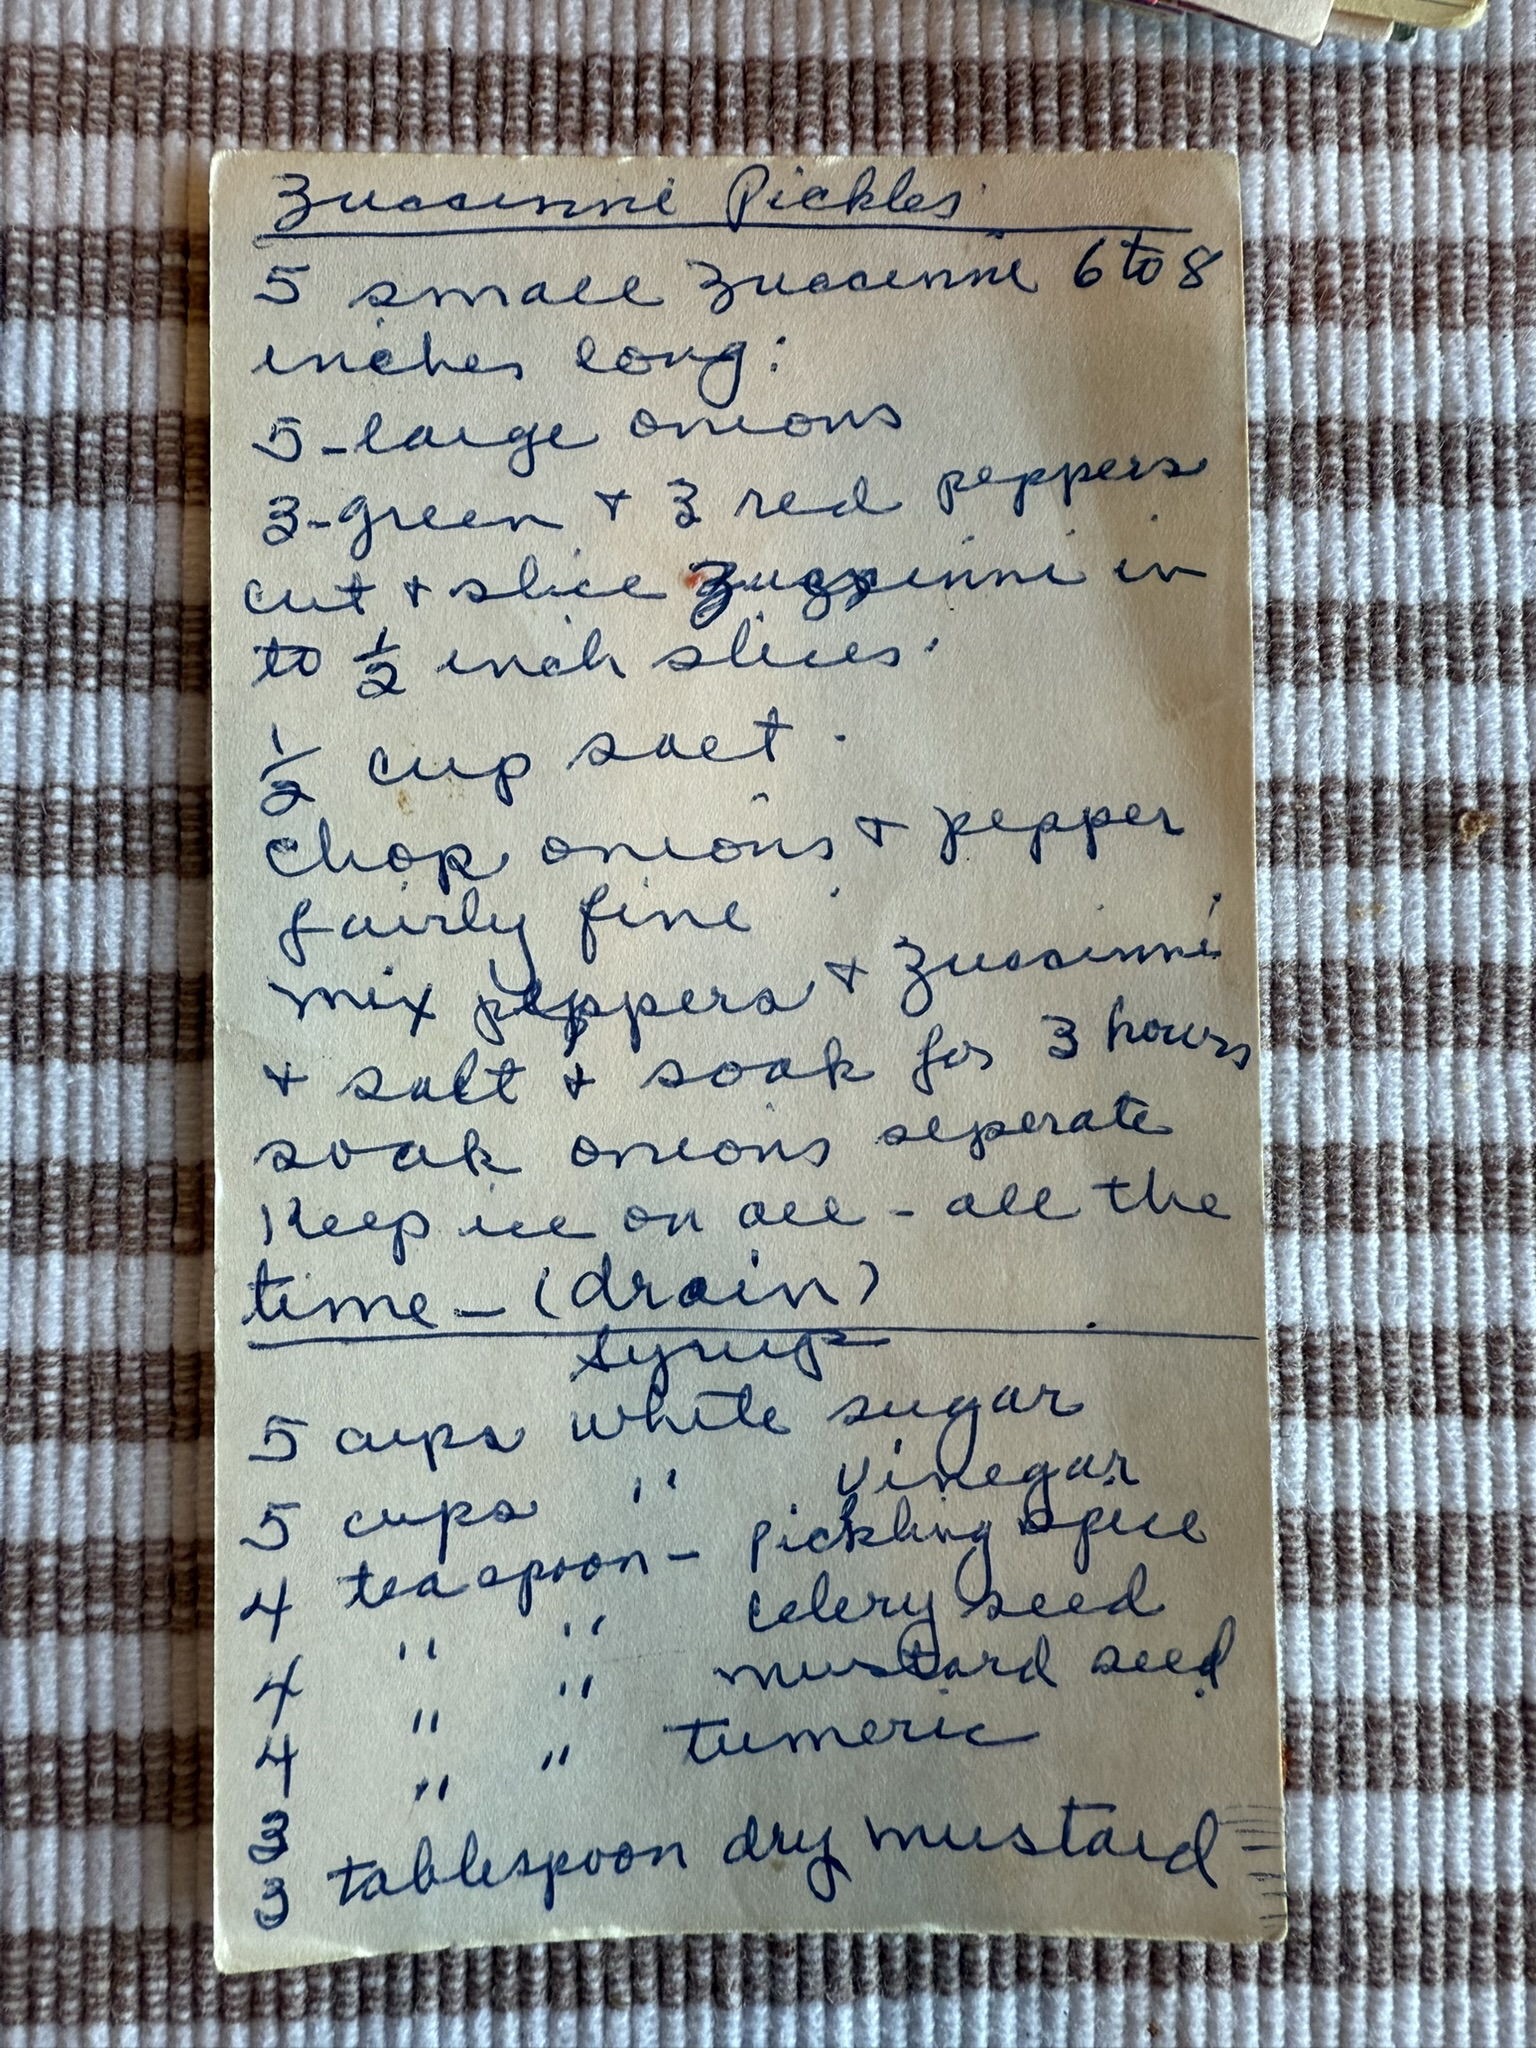 Zuccinni Pickles
5 small Zuccinni 6 to 8
inches long:
5-large onions
3-green + 3 red peppers
cut + slice Zuccinni in
to 1/2 inch slices.
1/2 cup salt.
Chop onions + pepper
fairly fine
mix peppers + Zuccinni
+ salt + soak for 3 hours
soak onions seperate
Keep ice on all - all the
time - (drain)
Syrup
5 cups white sugar
5 cups " vinegar
4 teaspoon - pickling spice
4 " " celery seed
4 " " mustard seed
3 " " tumeric
3 tablespoon dry mustard